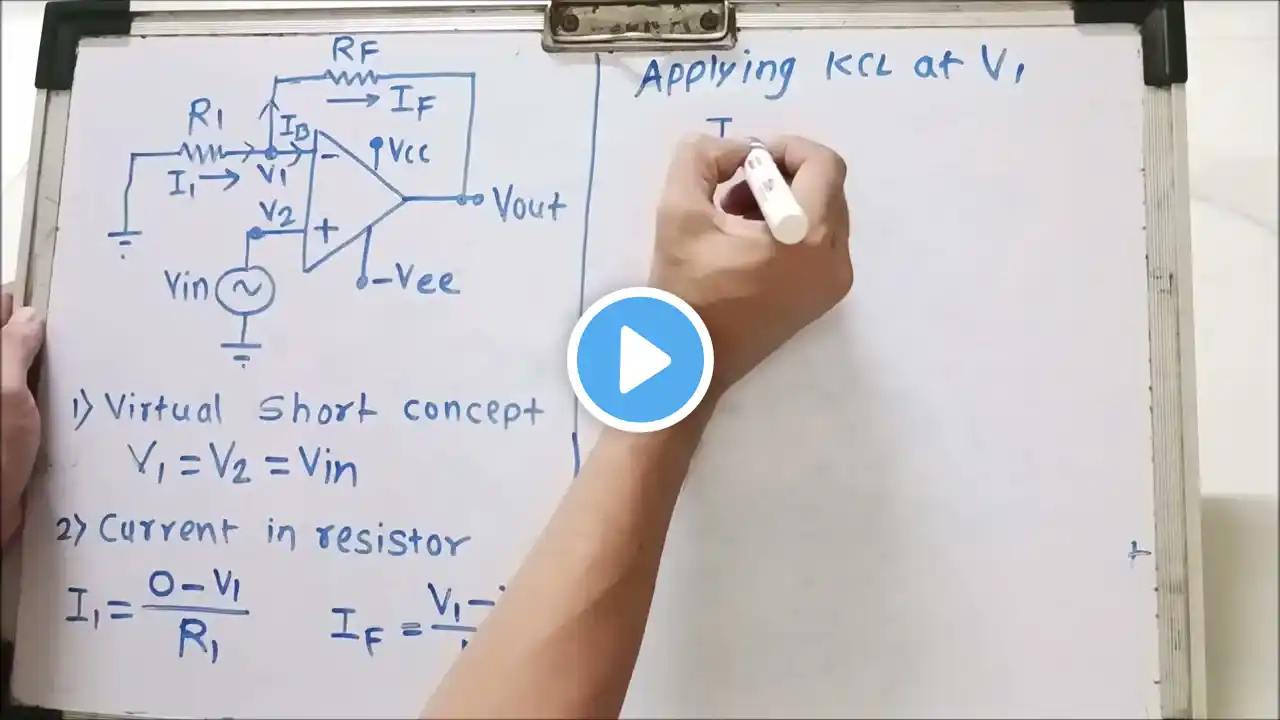 RF
IF
R1
IB
Vcc
I1
V1
V2
Vout
Vin
-Vee
1) Virtual short concept
V1 = V2 = Vin
2) Current in resistor
I1 = 0 - V1 / R1
IF = V1 -
Applying KCL at V1
I